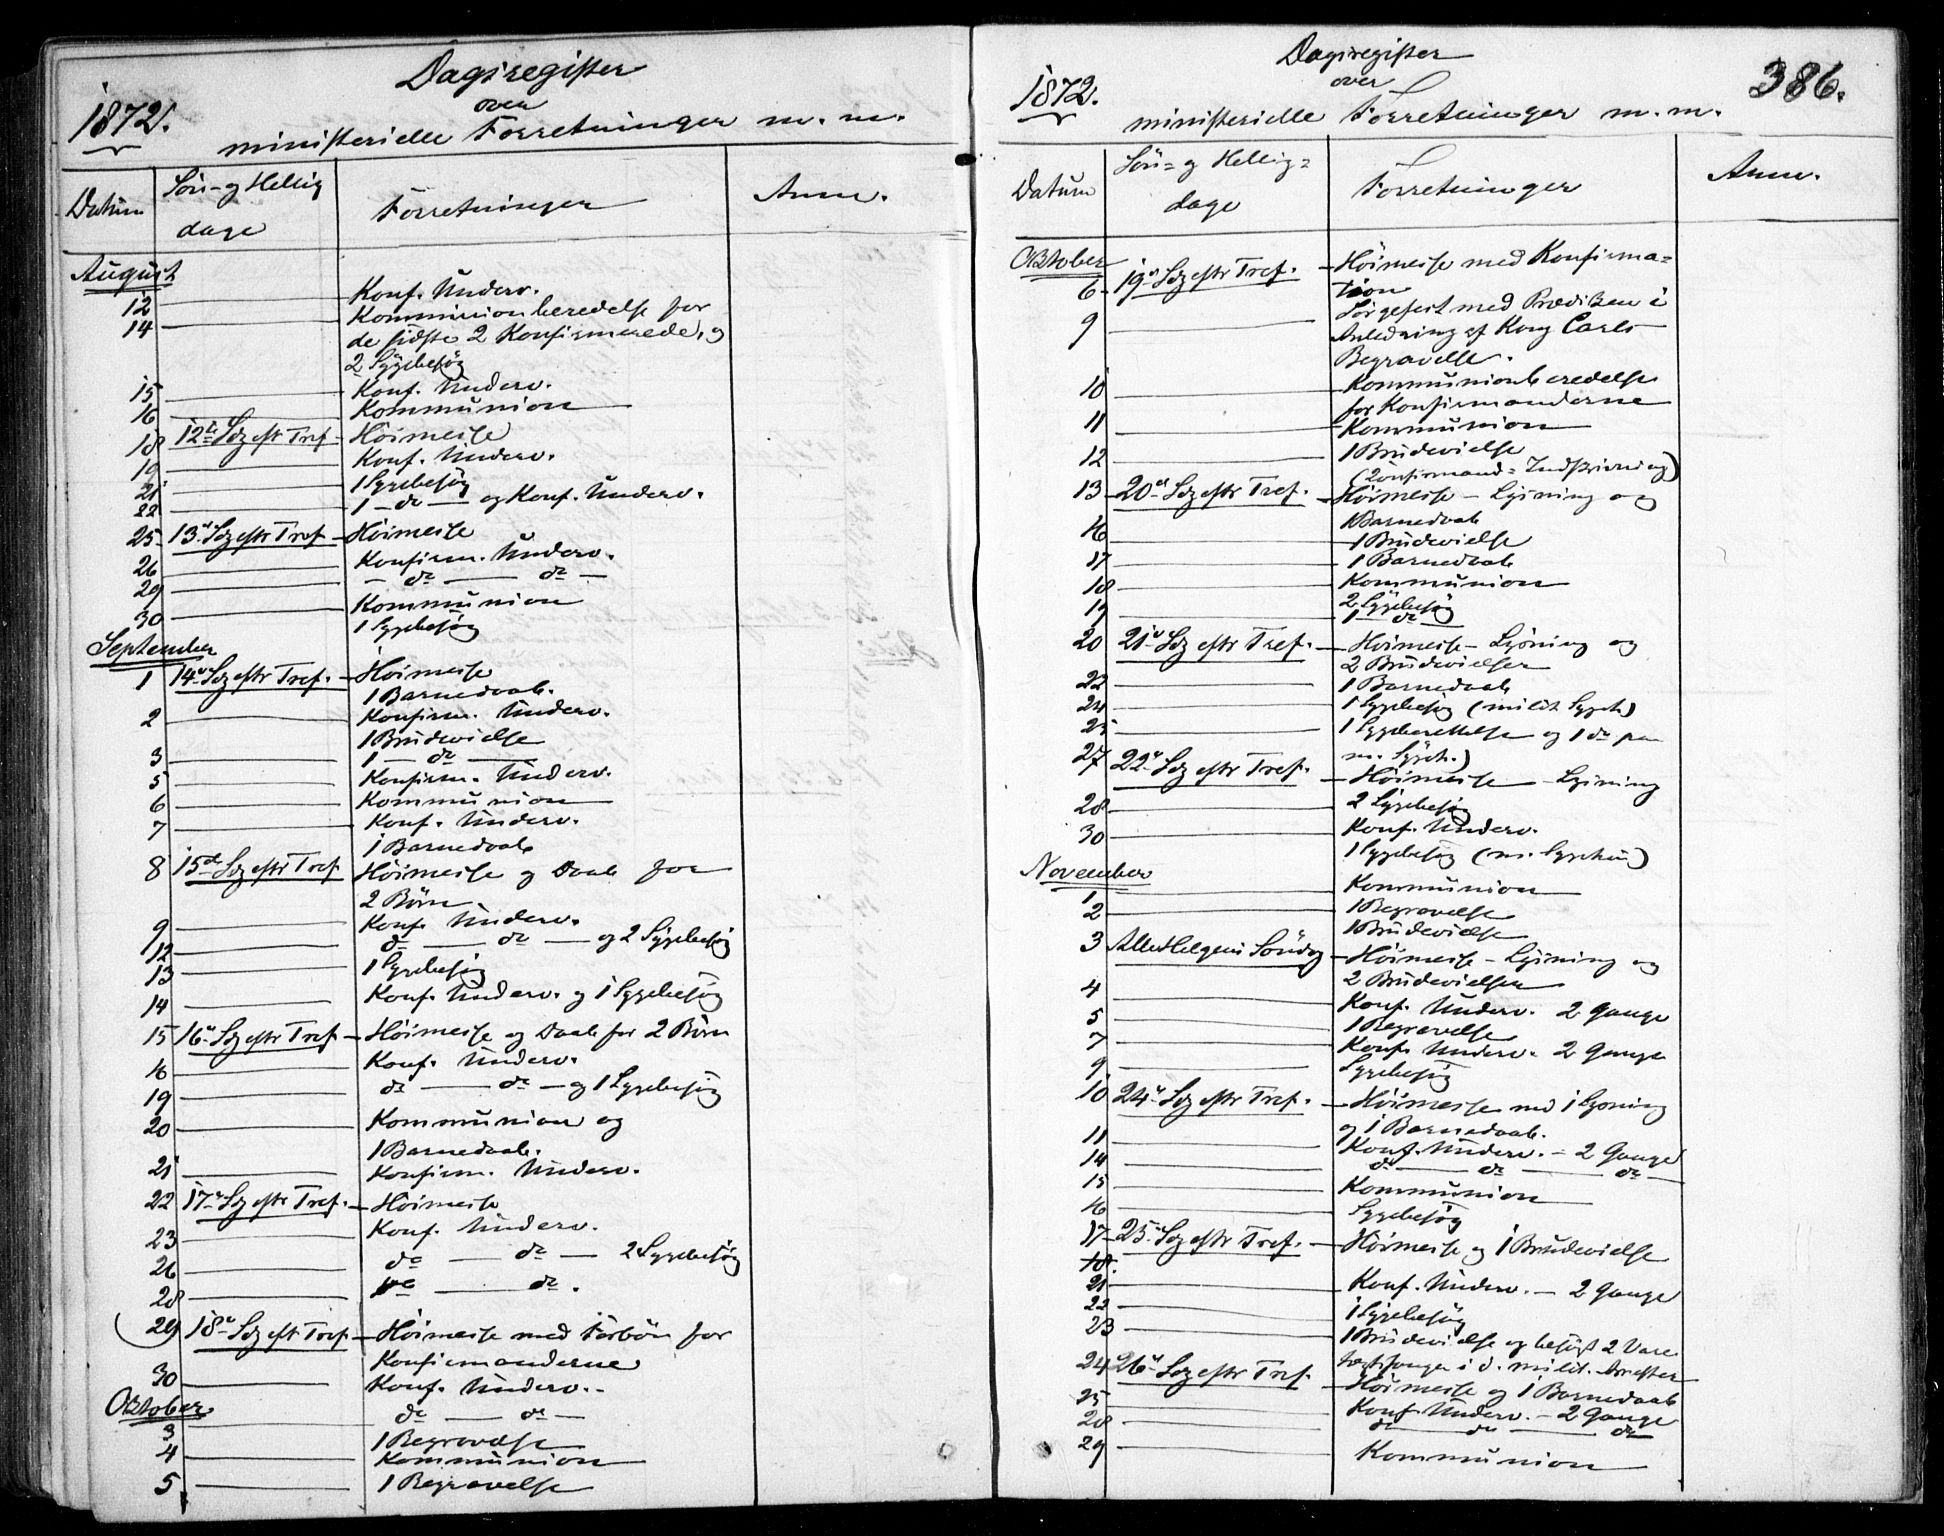 1872.
Dagsregister
over
ministerielle Forretninger m. m.
Datum
Søn- og Hellig
dage
Forretninger
Anm.
August
12 Konf. Underv.
14 Kommunionberedelse for
de sidste 2 Konfirmerede, og
2 Sygebesøg
15 Konf. Underv.
16 Kommunion
18 12te Sdg eft Tref. Höimesse
19 Konf. Underv.
21 1 Sygebesøg
22 1 do og Konf. Underv.
25 13. Sdg eftr Tref. Höimesse
26 Konfirm. Underv.
29 do do
30 Kommunion
1 Sygebesøg
September
1 14. Sdg eftr Tref. Höimesse
1 Barnedaab.
2 Konfirm. Underv.
1 Brudevielse
3 1 do
5 Konfirm. Underv.
6 Kommunion
7 Konf. Underv.
1 Barnedaab
8 15de Sdg eftr Tref Höimesse og Daab for
2 Börn
9 Konf. Underv.
12 do do og 2 Sygebesøg
13 1 Sygebesøg
14 Konf. Underv. og 1 Sygebesøg
15 16. Sdg eftr Tref Höimesse og Daab for 2 Börn
16 Konf. Underv.
19 do do og 1 Sygebesøg
20 Kommunion og
1 Barnedaab.
21 Konfirm. Underv.
22 17. Sdg eftr Tref. Höimesse
23 Konf. Underv.
26 do do 2 Sygebesøg
28 do do.
29 18. Sdg eft Tref Höimesse med Forbön for
Konfirmanderne
30 Konf. Underv.
Oktober
3 do do
1 Begravelse
4 Kommunion
5 1 Begravelse
386.
1872.
Dagsregister
over
ministerielle Forretninger m. m.
Datum
Søn- og Hellig-
dage
Forretninger
Anm.
Oktober
6 19. Sdg eftr Tref. Höimesse med Konfirma-
tion
9 Sørgefest med Prædiken i
Anledning af Kong Carls
Begravelse.
10 Kommunionberedelse
for Konfirmanderne
11 Kommunion
12 1 Brudevielse
(Konfirmand-Indskrivning)
13 20. Sdg eftr Tref. Höimesse - Lysning og
1 Barnedaab
16 1 Brudevielse
17 1 Barnedaab
18 Kommunion
19 2 Sygebesøg
1 do
20 21. Sdg eftr Tref. Höimesse - Lysning og
2 Brudevielser
22 1 Barnedaab
24 1 Sygebesøg (milit. Sygeh)
25 1 Sygeberettelse og 1 do paa
m. Sygeh.)
27 22. Sdg eftr Tref. Höimesse - Lysning
28 2 Sygebesøg
30 Konf. Underv.
1 Sygebesøg (m. Sygehuus)
November
1 Kommunion
2 1 Begravelse
1 Brudevielse
3 Alle Helgens Söndag Höimesse - Lysning og
2 Brudevielser
4 Konf. Underv. 2 Gange
5 1 Begravelse
7 Konf. Underv. 2 Gange
9 Sygebesøg
10 24. Sdg eftr Tref. Höimesse med 1 Lysning
og 1 Barnedaab.
11 Konf. Underv. - 2 Gange
14 do do do
15 Kommunion
16 Sygebesøg
17 25. Sdg eftr Tref. Höimesse og 1 Brudevielse
18.
21 Konf. Underv. - 2 Gange
22 1 Sygebesøg
23 1 Brudevielse og besögt 2 Vare-
tægtsfanger i d. milit. Arrester
24 26. Sdg eftr Tref. Höimesse og 1 Barnedaab
25 Konf. Underv. - 2 Gange
28 do do do
29 Kommunion